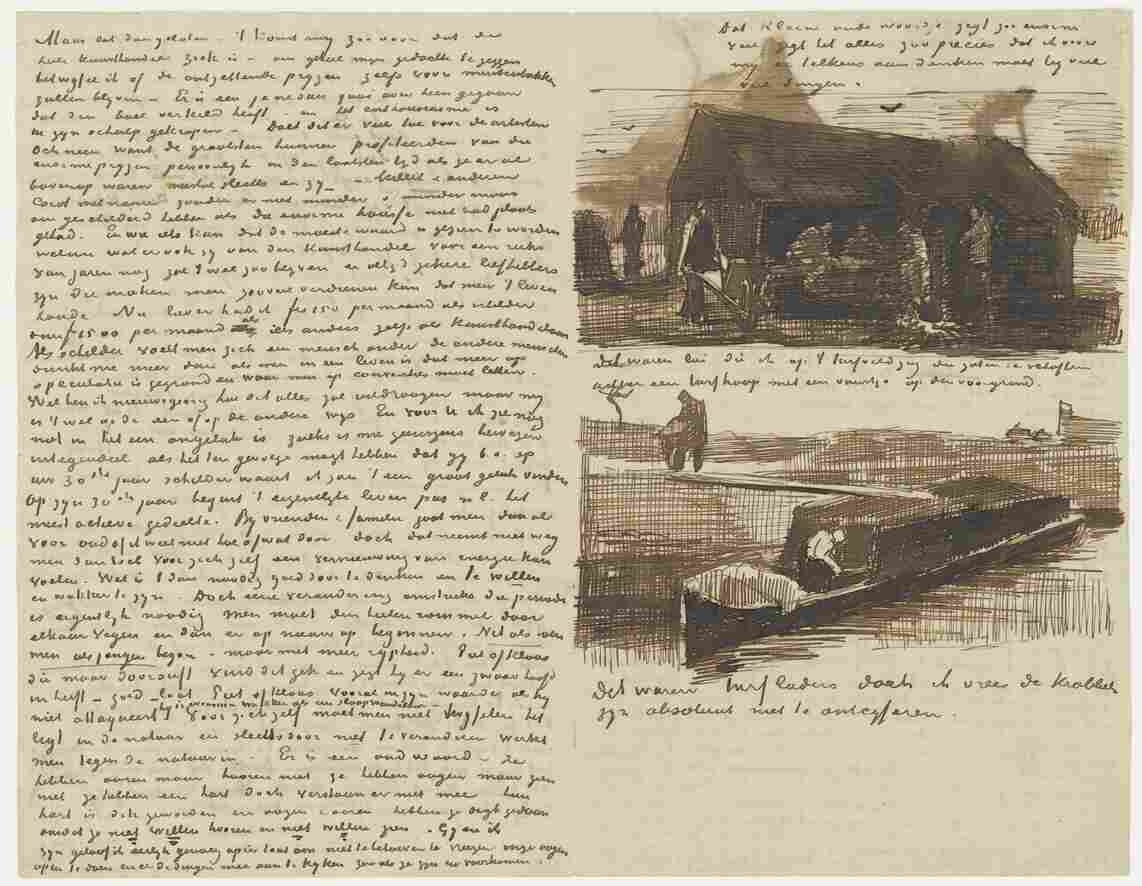 Maar dat daargelaten – 't komt mij zoo voor dat de
heele kunsthandel ziek is – om gelove mijn gedachte te zeggen
betwijfel ik of de ontzettende prijzen zelfs voor meesterstukken
zullen blijven – Er is een je ne sais quoi over heen gegaan
dat den boel verkild heeft – en het enthousiasme is
in zijn schulp gekropen – Doet dit er veel toe voor de artisten
och neen want de grootsten hunner profiteerden van die
enorme prijzen persoonlijk in den laatsten tijd als ze er al
bovenop waren meestal slechts en zij – Millet & anderen
Corot met name zouden er niet minder & minder mooi
om geschilderd hebben als die enorme hausse niet had plaats
gehad. En wie iets kan dat de moeite waard is gezien te worden
welnu wat er ook zij van den kunsthandel voor een reeks
van jaren nog zal 't wel zoo blijven er altijd zekere liefhebbers
zijn die maken men zooveel verdienen kan dat men 't leven
houde Nu liever had ik frs 150 per maand als schilder
dan frs 1500 per maand als iets anders zelfs als kunsthandelaar
Als schilder voelt men zich een mensch onder de andere menschen
dunkt me meer dan als men in een leven is dat meer op
speculatie is gegrond en waar men op conventies moet letten.
Wel ben ik nieuwsgierig hoe dit alles zal verloopen maar mij
is 't wel op de een of op de andere wijs En voor U ik zie nog
niet in het een ongeluk is zulks is me geenszins bewezen
integendeel als het ten gevolge mogt hebben dat gij b.v. op
uw 30ste jaar schilder waart ik zou 't een groot geluk vinden
Op zijn 30ste jaar begint 't eigenlijke leven pas n.l. het
meest actieve gedeelte. Bij vrienden & familie gaat men dan al
voor oud of ik weet niet hoe of wat door doch dat neemt niet weg
men dan toch voor zich zelf een vernieuwing van energie kan
voelen. Wel is 't dan noodig goed door te denken en te willen
en wakker te zijn. Doch eene verandering omstreeks die periode
is eigentlijk noodig men moet den heelen rommel door
elkaar vegen en dan er op nieuw op beginnen. Net als toen
men als jongen begon – maar met meer rijpheid. Piet of Klaas
die maar doorsuft vindt dit gek en zegt hij er een zwaar hoofd
in heeft – goed – laat Piet of Klaas vooral in zijn waarde als hij
niet attaqueert. Voor zich zelf moet men niet vergeten het
ligt in de natuur en slechts door niet te veranderen werkt
men tegen de natuur in. Er is een oud woord – Ze
hebben ooren maar hooren niet ze hebben oogen maar zien
niet ze hebben een hart doch verstaan er niet mee hun
hart is dik geworden en oogen & ooren hebben ze digt gedaan
omdat ze niet willen hooren en niet willen zien. Gij en ik
zijn geloof ik eerlijk genoeg op iets laat om niet te behoeven te vreezen onze oogen
open te doen en er de dingen mee aan te kijken zooals ze zijn en voorkomen.
Dat kleine oude woordje zegt zoo enorm
veel zegt het alles zoo precies dat ik voor
mij er telkens aan denken moet bij veel
veel dingen.
Dit waren lui die ik op 't turfveld zag die zaten te schoften
achter een turfhoop met een vuurtje op den voorgrond.
Dit waren turfladers doch ik vrees de krabbels
zijn absoluut niet te ontcijferen.